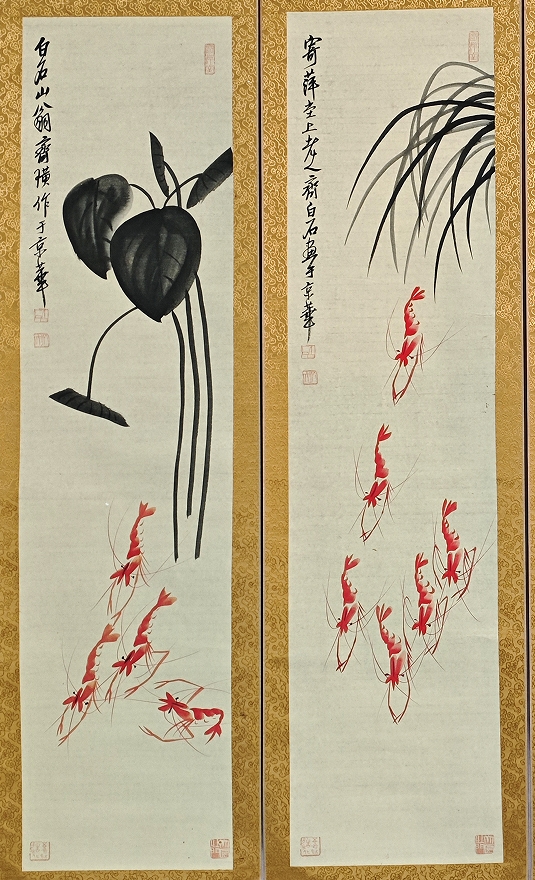 白石山翁齊璜作于京華
寄萍堂上老人齊白石畫于京華